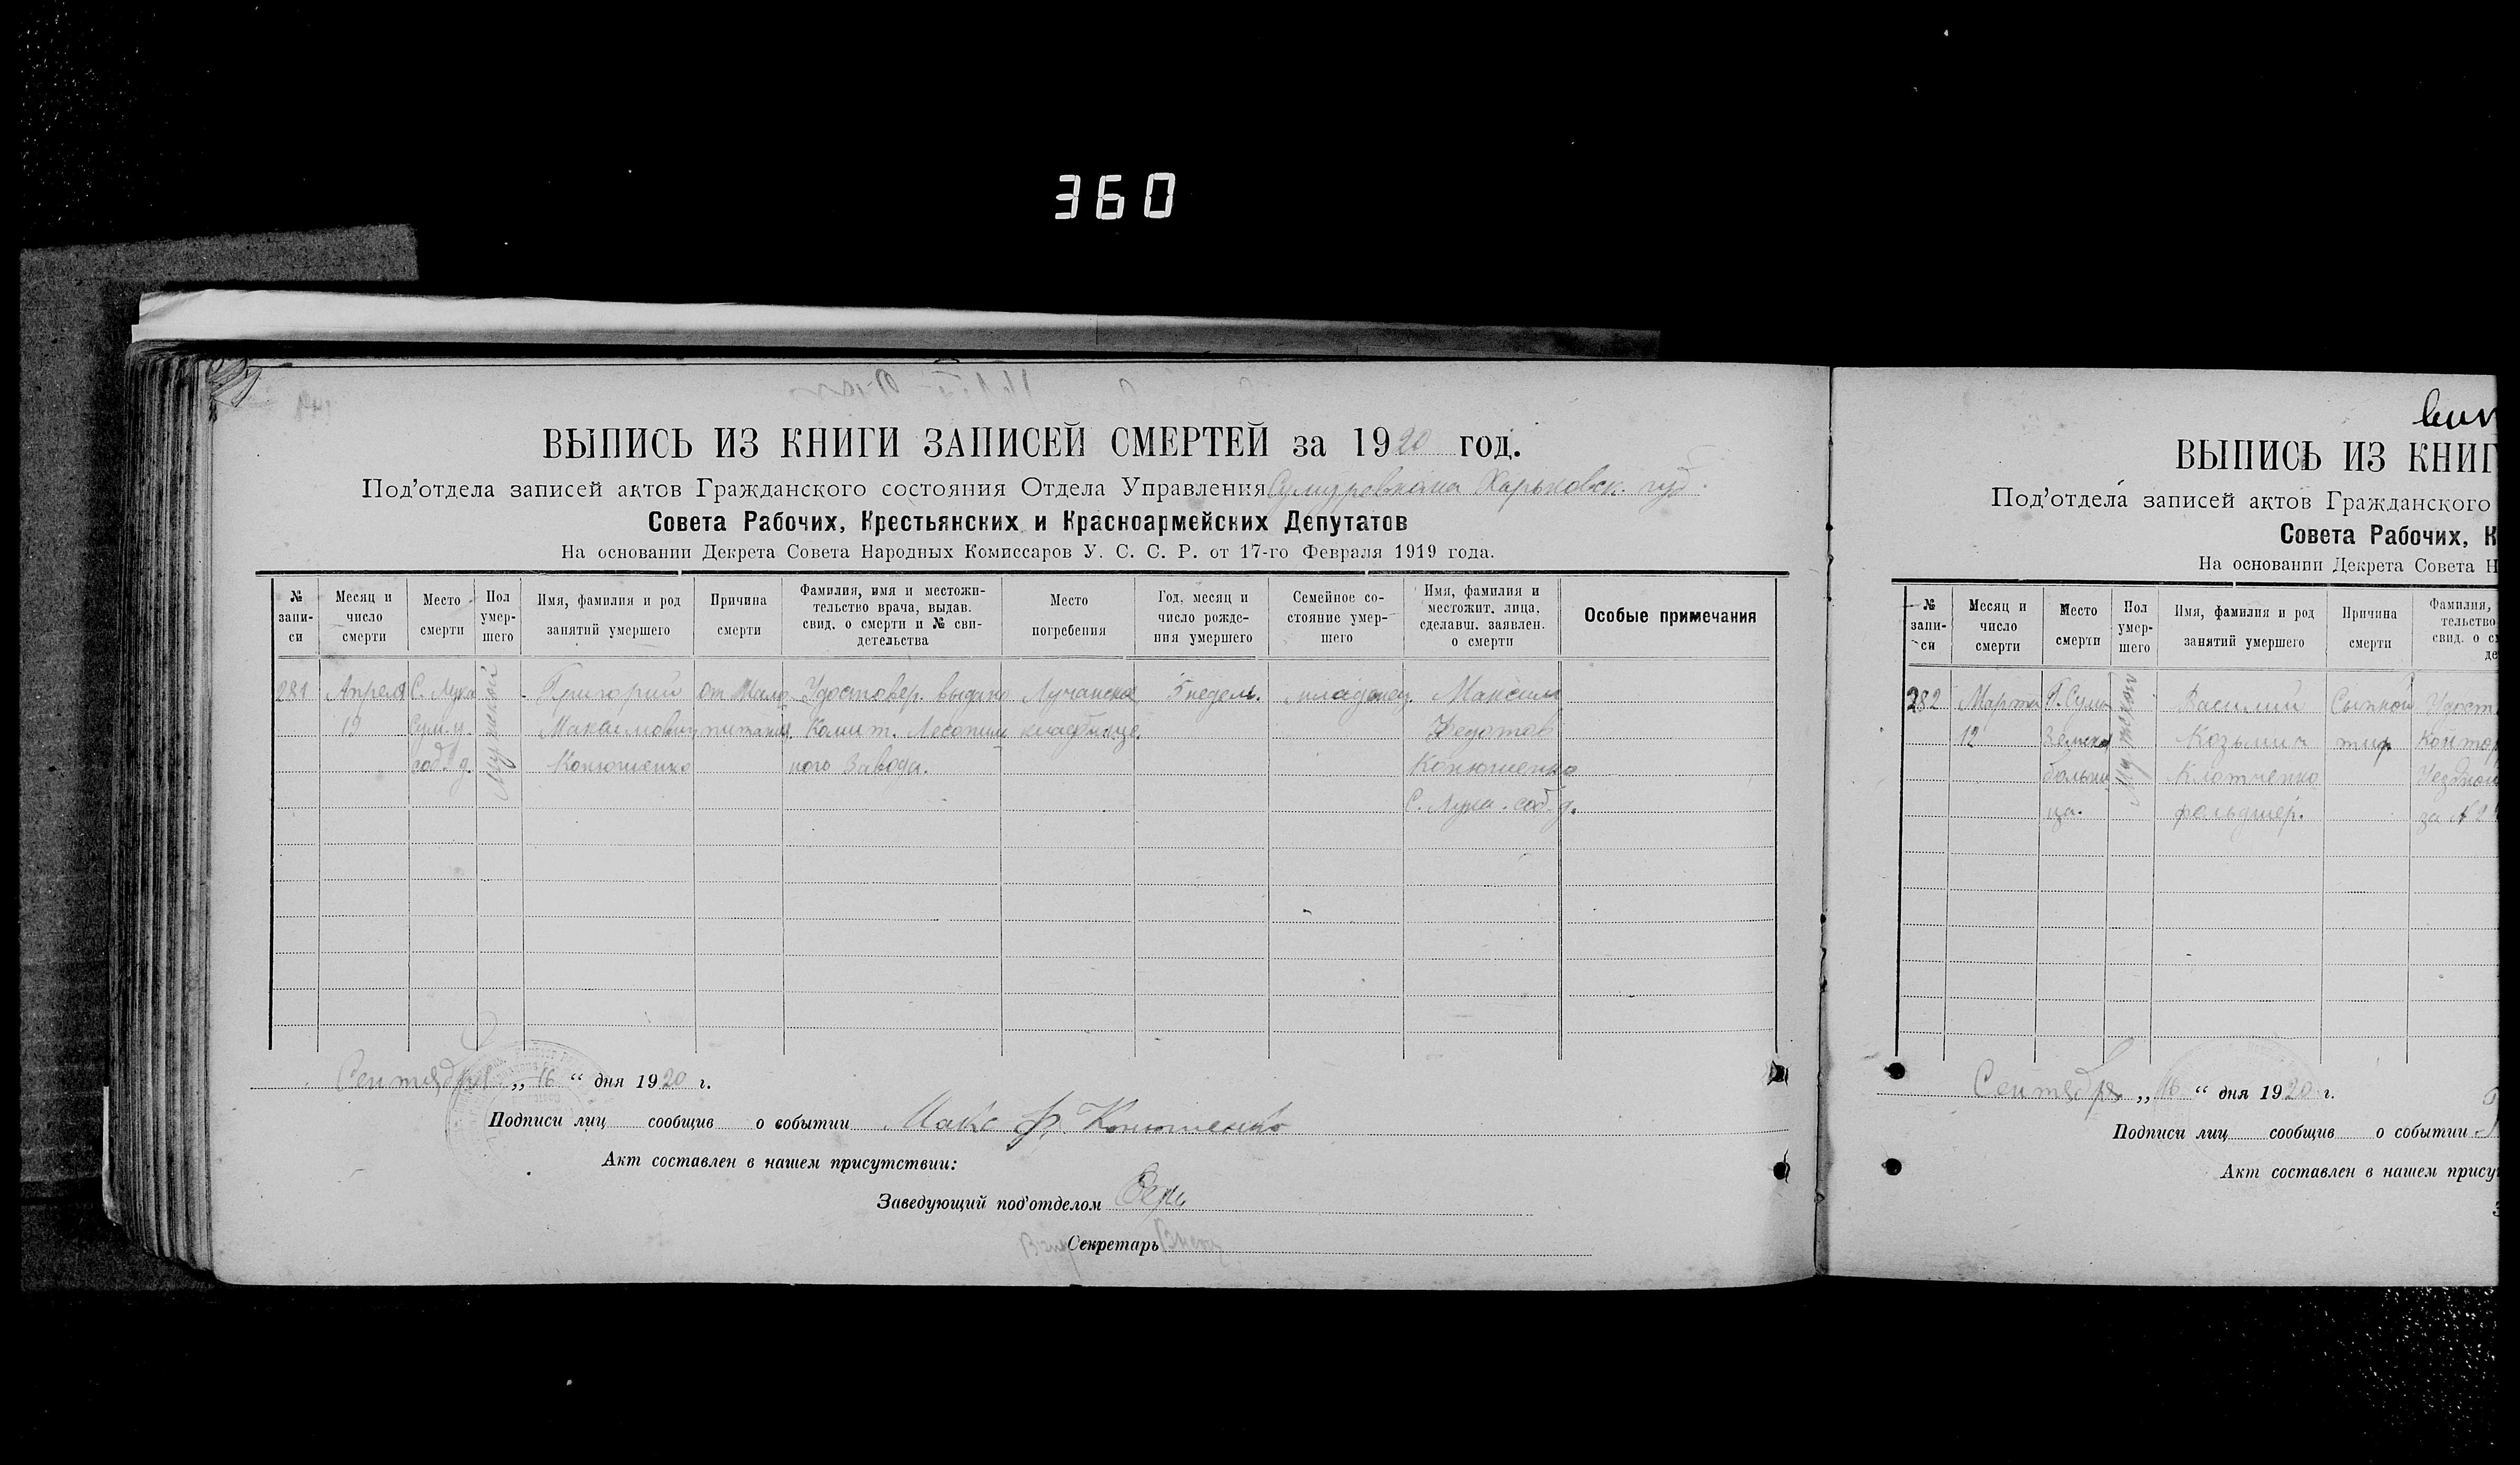 360
ВЫПИСЬ ИЗ КНИГИ ЗАПИСЕЙ СМЕРТЕЙ за 1920 год.
Под’отдела записей актов Гражданского состояния Отдела Управления Сумуревкома Харьковск. губ.
Совета Рабочих, Крестьянских и Красноармейских Депутатов
На основании Декрета Совета Народных Комиссаров У. С. С. Р. от 17-го Февраля 1919 года.
№ запи- си
Месяц и число смерти
Место смерти
Пол умер- шего
Имя, фамилия и род занятий умершего
Причина смерти
Фамилия, имя и местожи- тельство врача, выдав. свид. о смерти и № сви- детельства
Место погребения
Год, месяц и число рожде- ния умершего
Семейное со- стояние умер- шего
Имя, фамилия и местожит. лица, сделавш. заявлен. о смерти
Особые примечания
281 Апреля С. Лука Мужской Григорий от Мало Удостовер. выдано Лучанское 5 недель. младенец. Максим
13 Сум. у. Максимович питания. Комит. Лесопиль кладбище. Федотов
соб. д. Конюшенко ного Завода. Конюшенко
С. Лука. соб. д.
Сентября „ 16 “ дня 1920 г.
Подписи лиц сообщив о событии Макс Ф. Конюшенко
Акт составлен в нашем присутствии:
Заведующий под’отделом
Секретарь
ВЫПИСЬ ИЗ КНИГ
Под’отдела записей актов Гражданского
Совета Рабочих, К
На основании Декрета Совета Н
№ запи- си
Месяц и число смерти
Место смерти
Пол умер- шего
Имя, фамилия и род занятий умершего
Причина смерти
Фамилия, тельство свид. о с де
282 Марта Г. Сумы Мужской Василий Сыпной Удост
12 Земска Козьмич тиф контор
больни Клотченко Уездной
ца. фельдшер. за №
Сентября „ 16 “ дня 1920 г.
Подписи лиц сообщив о событии
Акт составлен в нашем прису